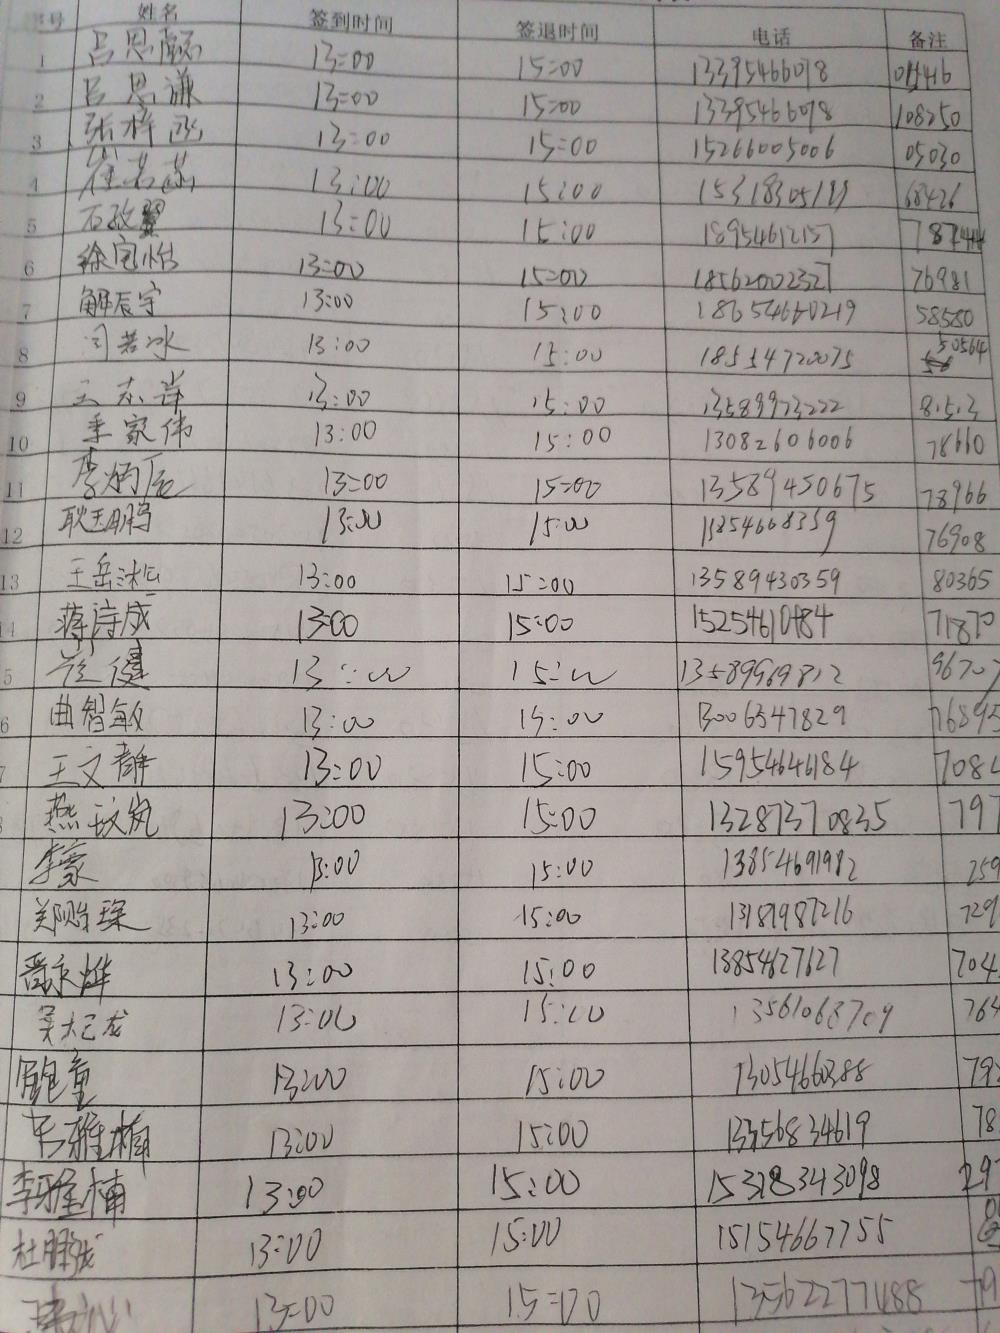 序号 姓名 签到时间 签退时间 电话 备注
1 吕思颍 13:00 15:00 13395466098
2 吕思谦 13:00 15:00 13395466098 108250
3 张梓函 13:00 15:00 15266005006 05030
4 崔若菡 13:00 15:00 68426
5 石孜翼 13:00 15:00 18954612157
6 徐宝怡 13:00 15:00 18562002327 76981
7 解辰宇 13:00 15:00 18654660219 58580
8 闫若冰 13:00 15:00 18554720075 50564
9 王东岸 13:00 15:00 13589973222 8.5.3
10 季家伟 13:00 15:00 13082606006 78660
11 李炳辰 13:00 15:00 13589450675 78966
12 耿玉鹏 13:00 15:00 15854668359 76908
13 王岳淞 13:00 15:00 13589430359 80365
蒋诗成 13:00 15:00 15254610484 71870
健 13:00 15:00 13589969812
曲智敏 13:00 15:00 13006547829 76895
王文静 13:00 15:00 15954646184 7082
燕玟岚 13:00 15:00 13287370835 797
李豪 13:00 15:00 13854691982 259
郑贻琛 13:00 15:00 13181987216 729
晋永烨 13:00 15:00 13854627627 704
吴大龙 13:00 15:00 13561068709 764
鲍童 13:00 15:00 13054660388 79
吕雅楠 13:00 15:00 13356834619 78
李雅楠 13:00 15:00 15318343098 297
杜鹏成 13:00 15:00 15154667755
13:00 15:00 13562277488 79